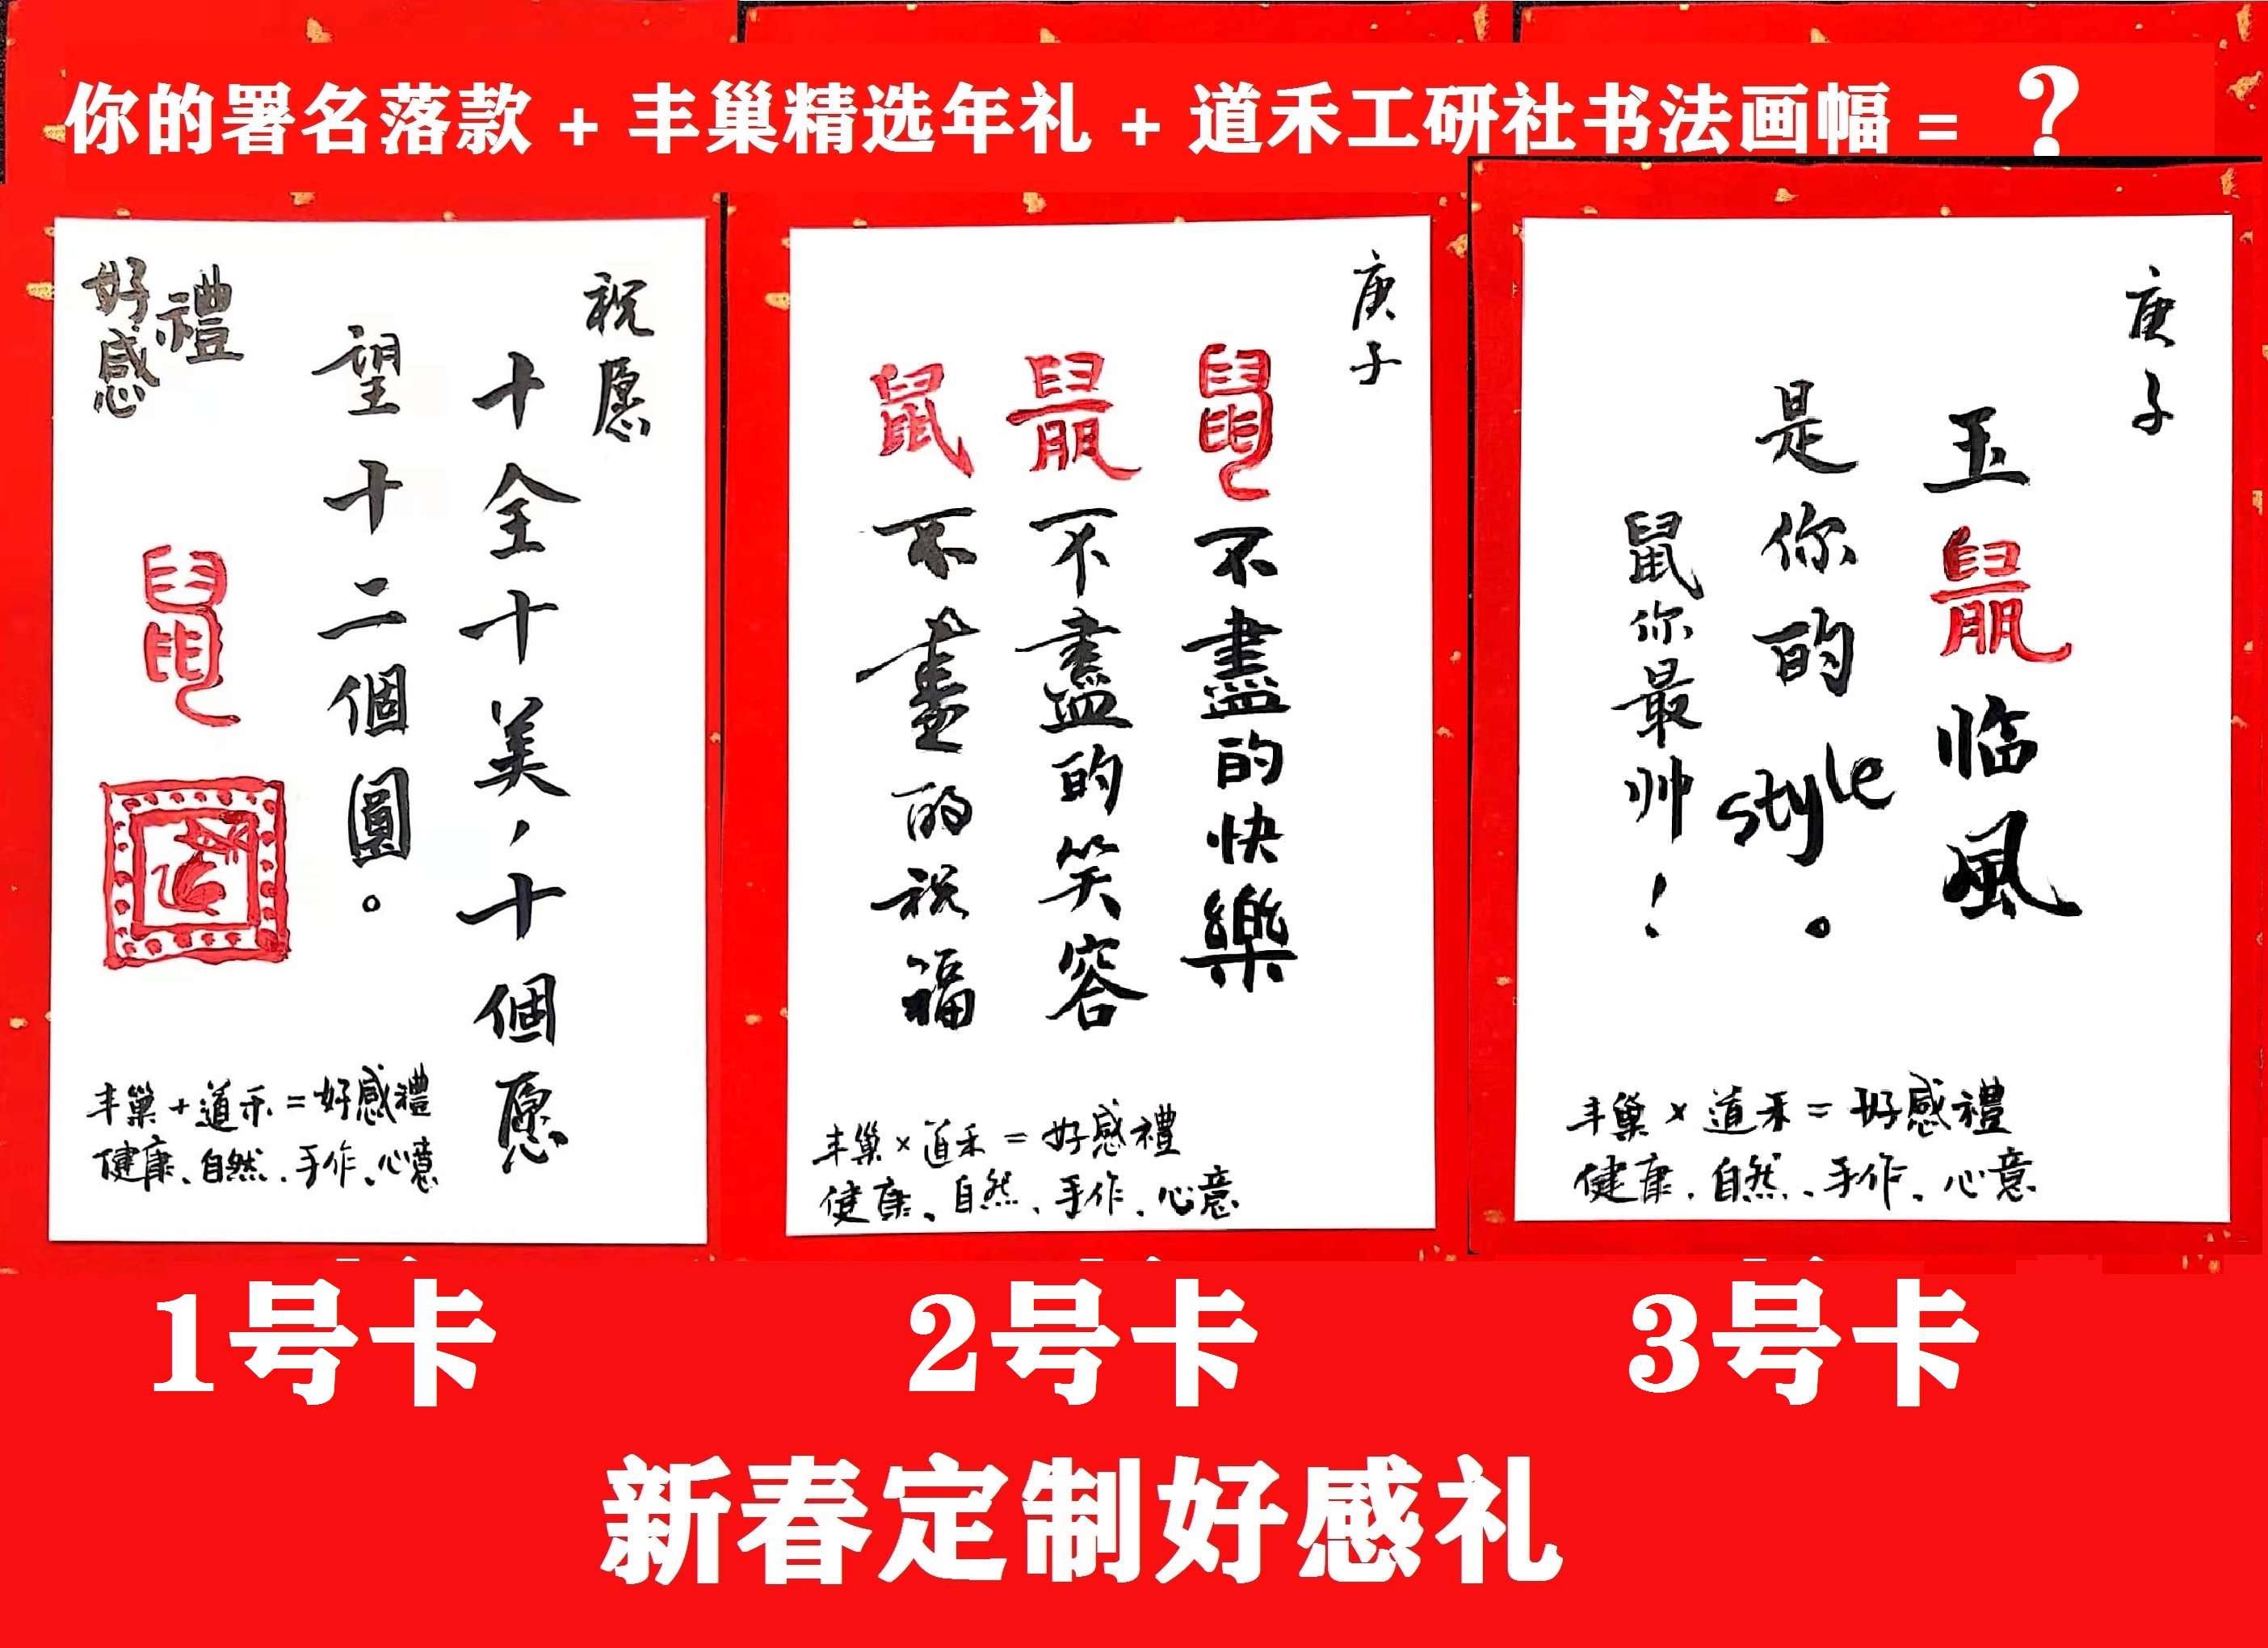 你的署名落款 + 丰巢精选年礼 + 道禾工研社书法画幅 = ?
祝愿
十全十美，十個愿
望十二個圓。
禮
好感
鼠
丰巢+道禾=好感禮
健康、自然、手作、心意
庚子
鼠不盡的快樂
鼠不盡的笑容
鼠不盡的祝福
丰巢×道禾=好感禮
健康、自然、手作、心意
庚子
玉鼠临風
是你的style。
鼠你最帅！
丰巢×道禾=好感禮
健康、自然、手作、心意
1号卡
2号卡
3号卡
新春定制好感礼